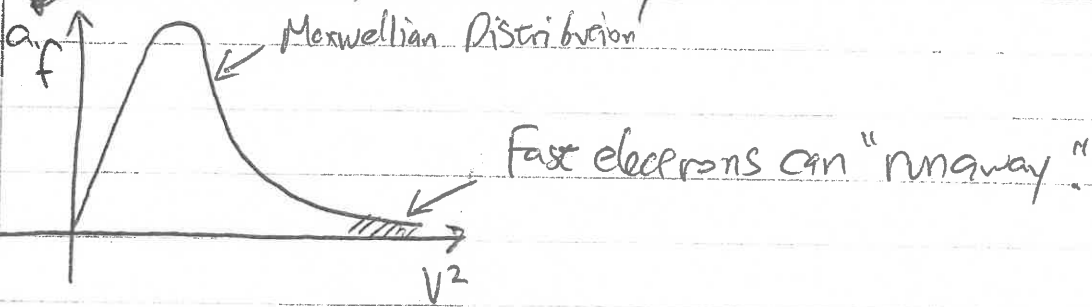 a.
f
Maxwellian Distribution
Fast electrons can "runaway".
V²